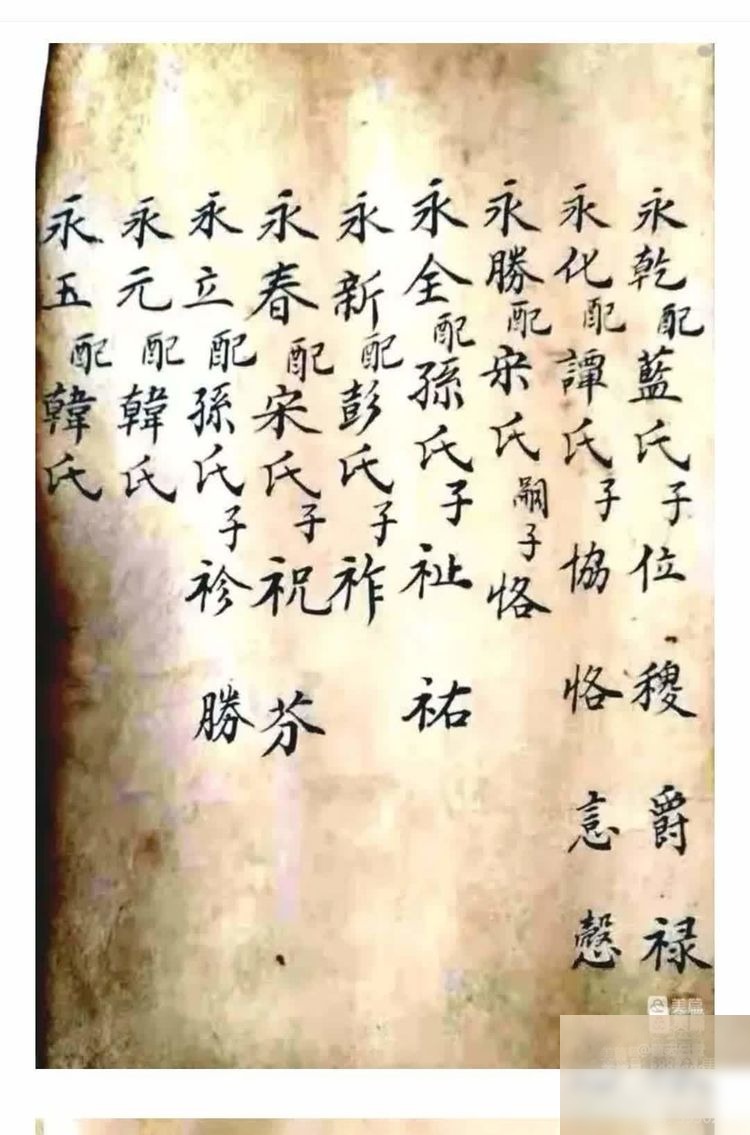 永乾配藍氏子位稷爵禄
永化配譚氏子協恪意慤
永勝配宋氏嗣子恪
永全配孫氏子祉祐
永新配彭氏子祚
永春配宋氏子祝芬
永立配孫氏子袗勝
永元配韓氏
永五配韓氏
美篇